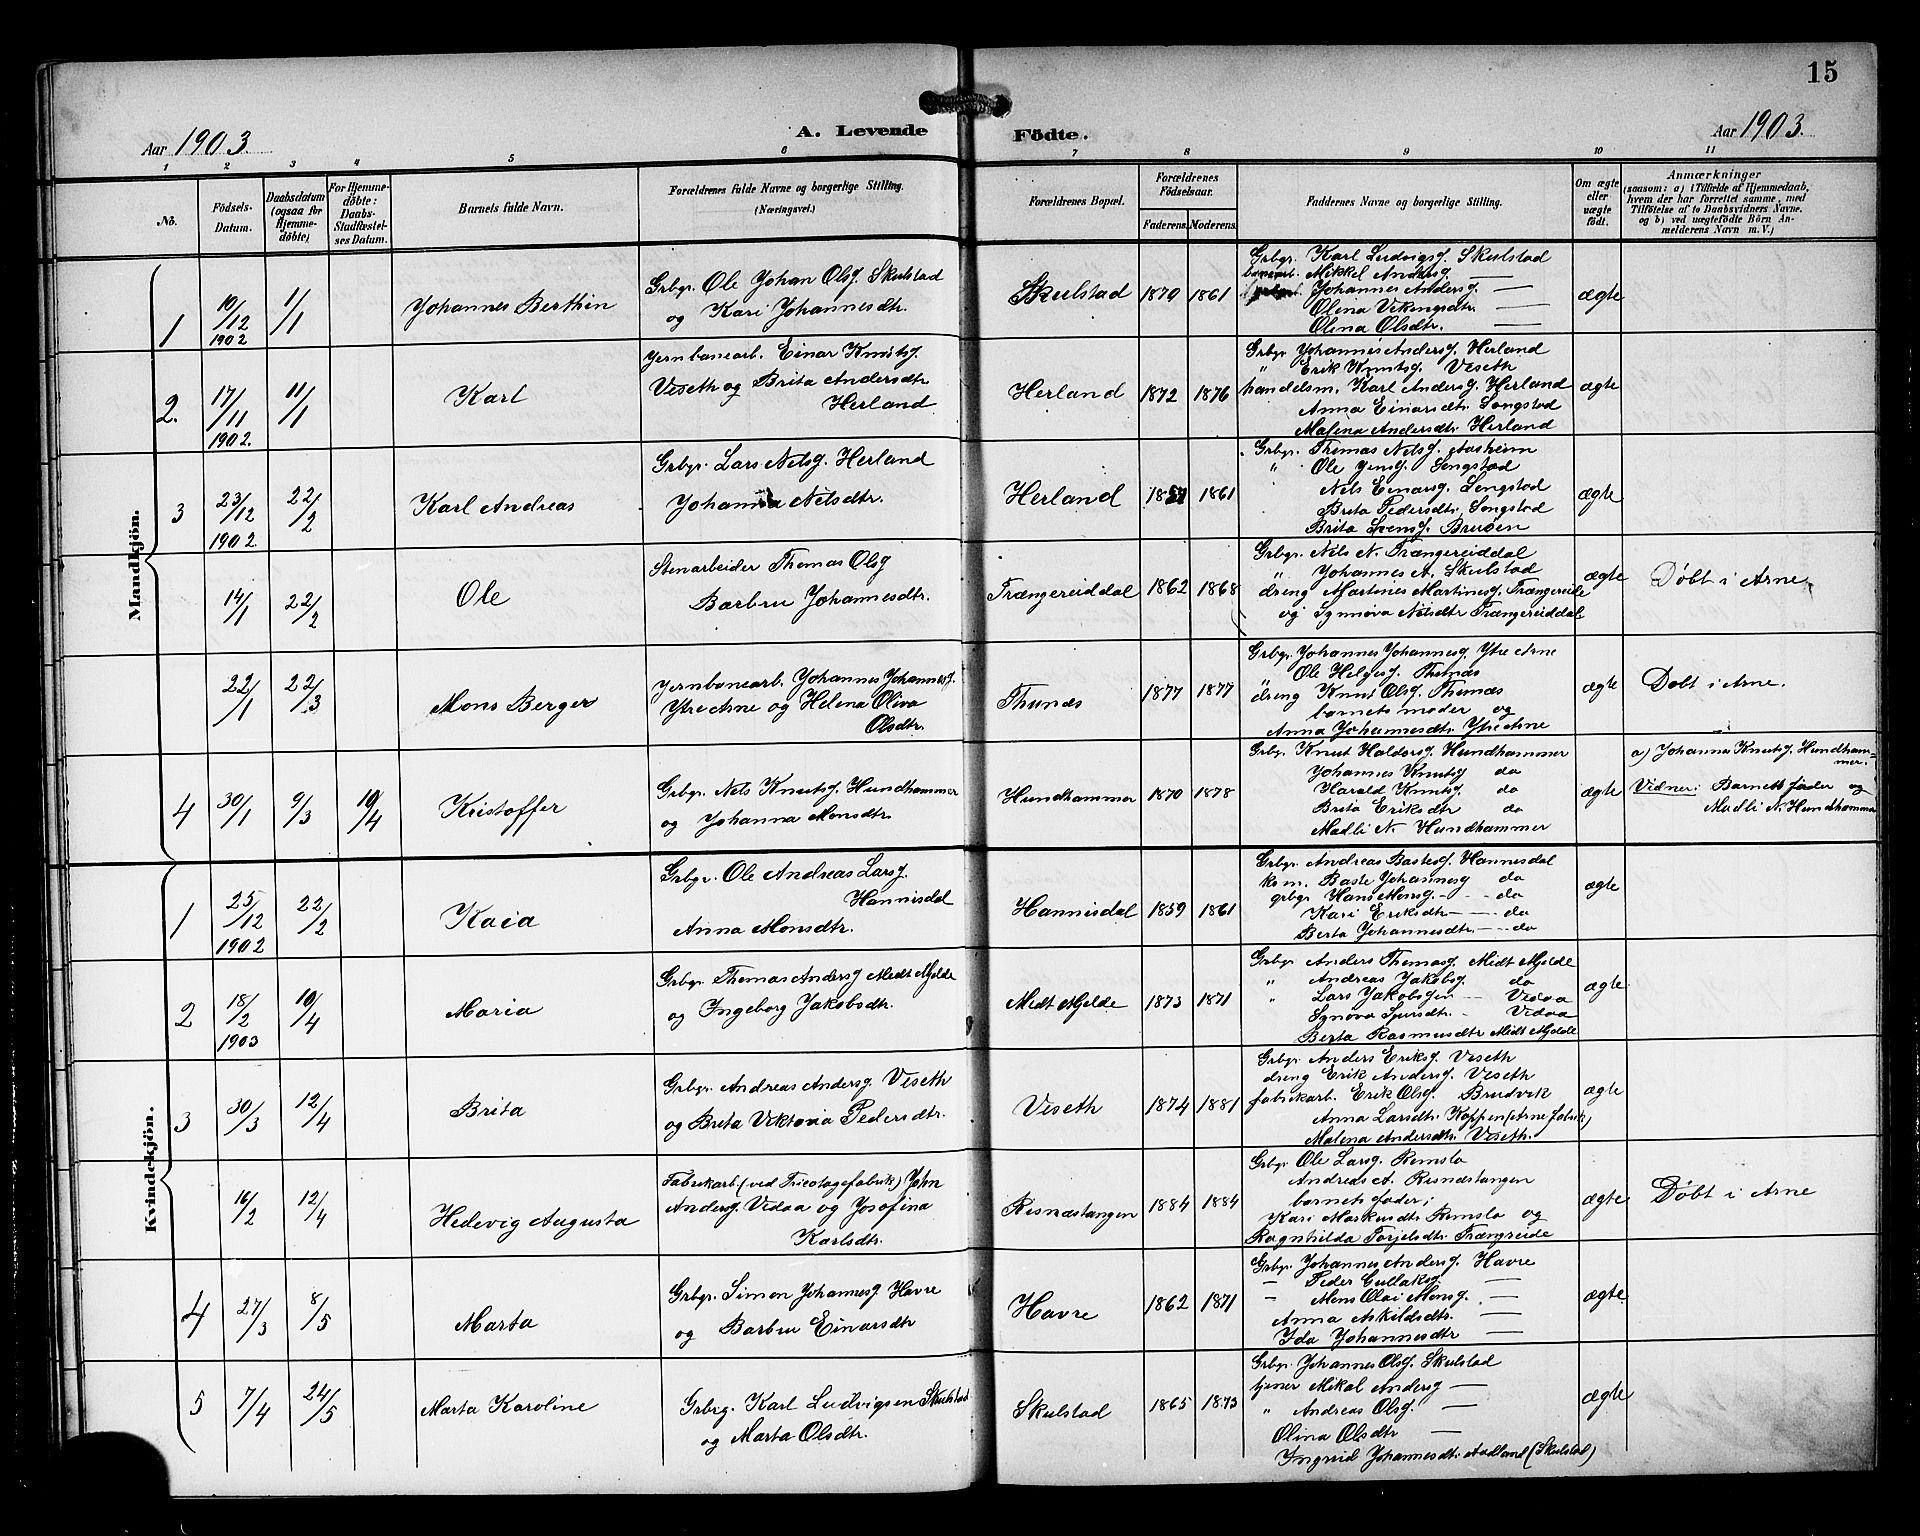 15
Aar 1903.
A. Levende Födte.
Aar 1903.
1 2 3 4 5 6 7 8 9 10 11
No.
Födsels-Datum.
Daabsdatum (ogsaa for Hjemme-döbte)
For Hjemme-döbte: Daabs-Stadfæstel-ses Datum.
Barnets fulde Navn.
Forældrenes fulde Navne og borgerlige Stilling. (Næringsvei.)
Forældrenes Bopæl.
Forældrenes Födselsaar.
Faderens. Moderens.
Faddernes Navne og borgerlige Stilling.
Om ægte eller uægte födt.
Anmærkninger
(saasom: a) i Tilfælde af Hjemmedaab,
hvem der har forrettet samme, med
Tilföielse af to Daabsvidners Navne.
og b) ved uægtefödte Börn An-
melderens Navn m. V.)
Mandkjön.
1 10/12 1902 1/1 Johannes Berthin
Grbgr. Ole Johan Olsg. Skulstad
og Kari Johannesdtr.
Skulstad 1870 1861
Grbgr. Karl Ludvigsg. Skulstad
Mikkel Andersg. —
Johannes Andersg. —
Olina Vekingsdtr.
Olina Olsdtr. —
ægte
2. 17/11 1902. 11/1 Karl
Jernbanearb. Einar Knutsg.
Veseth og Brita Andersdtr
Herland
Herland 1872 1876
Grbgr. Johannes Andersg. Herland
" Erik Knutsg. Veseth
handelsm. Karl Andersg. Herland
Anna Einarsdtr. Songstad
Malena Andersdtr. Herland
ægte
3 23/12 1902. 22/2 Karl Andreas
Grbgr. Lars Nelsg. Herland
Johanna Nelsdtr.
Herland 1861
Grbgr. Thomas Nelsg. Aasheim
" Ole Jensg. Songstad
Nels Einarsg. Songstad
Brita Pedersdtr. Songstad
Brita Svensg. Bruöen
ægte
14/1 22/2 Ole
Stenarbeider Thomas Olsg
Barbru Johannesdtr.
Trængereiddal 1862 1868
Grbgr. Nels N. Trængereiddal
" Johannes A. Skulstad
dreng Martines Martinesg. Trængereide
og Synnöva Nelsdtr Trængereiddal
ægte
Döbt i Arne
22/1 22/3 Mons Berger
Jernbanearb. Johannes Johannesg.
Ytre Arne og Helena Oliva
Olsdtr.
Thunæs 1877 1877
Grbgr. Johannes Johannesg. Ytre Arne
Ole Helgesg. Thunæs
dreng Knut Olsg. Thunæs
barnets moder og
Anna Johannesdtr. Ytre Arne
ægte
Döbt i Arne.
4 30/1 9/3 19/4 Kristoffer
Grbgr. Nels Knutsg. Hundhammer
og Johanna Monsdtr.
Hundhammer 1870 1878
Grbgr. Knut Haldorsg. Hundhammer
Johannes Knutsg do
Harald Knutsg. do
Brita Eriksdtr do
Madli N. Hundhammer
ægte
a) Johannes Knutsg. Hundham-
mer.
Vidner: Barnets fader og
Madli N. Hundhammer
Kvindekjön.
1 25/12 1902 22/2 Kaia
Grbgr. Ole Andreas Larsg.
Hannisdal
Anna Monsdtr.
Hannisdal 1859 1861
Grbgr. Andreas Bastesg. Hannesdal
ksm. Baste Johannesg do
grbgr. Hans Monsg. — do
Kari Eriksdtr — do
Berta Johannesdtr. — do
ægte
2 18/2 1903 19/4 Maria
Grbgr. Thomas Andersg Midt Mjelde
og Ingeborg Jakobsdtr.
Midt Mjelde 1873 1871
Grbgr. Anders Thomasg. Midt Mjelde
" Andreas Jakobsg. do
" Lars Jakobsgen — Vidaa
Synöva Sjursdtr. — Vidaa
Berta Rasmusdtr Midt Mjelde
ægte.
3 30/3 12/4 Brita
Grbgr. Andreas Andersg. Veseth
og Brita Viktoria Pedersdtr.
Veseth 1874 1881
Grbgr. Anders Eriksg. Veseth
dreng Erik Andersg. Veseth
fabrikarb. Erik Olsg. Brudvik
Anna Larsdtr. Koppen (Arne fabrik)
Malena Andersdtr. Veseth.
ægte
16/2 12/4 Hedevig Augusta
Fabrikarb. (ved Tricotagefabrik) John
Andersg. Vidaa og Josefina
Karlsdtr.
Risnæstangen 1884 1884
Grbgr. Ole Larsg. Romslo
Andreas A. Risnæstangen
barnets fader;
Kari Markusdtr Romslo og
Ragnhilda Torjelsdtr. Trængreide
ægte
Döbt i Arne
4 27/3 8/5 Marta
Grbgr. Simon Johannesg Havre
og Barbru Einarsdtr
Havre 1862 1871
Grbgr. Johannes Andersg. Havre
— Peder Gullaksg. —
— Mons Olai Monsg. —
Anna Askildsdtr. —
Ida Johannesdtr —
ægte.
5 7/4 24/5 Marta Karoline
Grbrg. Karl Ludvigsen Skulstad
og Marta Olsdtr.
Skulstad 1865 1873
Grbgr. Johannes Olsg. Skulstad
tjener Mikal Andersg —
" Andreas Olsg. —
Olina Olsdtr —
Ingrid Johannesdtr. Aadland (Skulstad)
ægte